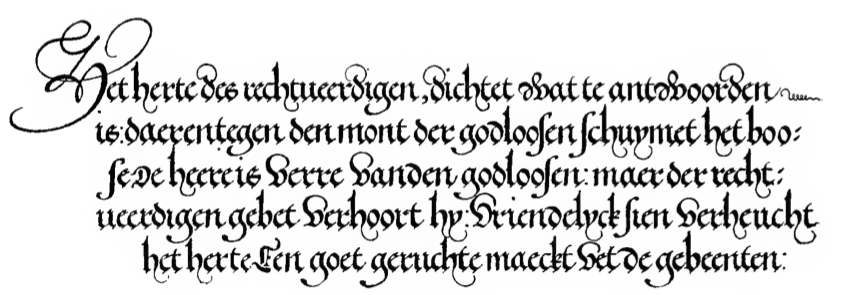 Het herte des rechtueerdigen, dichtet wat te antwoorden
is: daerentegen den mont der godloosen schuymet het boo:
se De heere is verre vanden godloosen: maer der recht:
ueerdigen gebet verhoort hy: Vriendelyck sien verheucht
het herte Een goet geruchte maeckt vet de gebeenten: